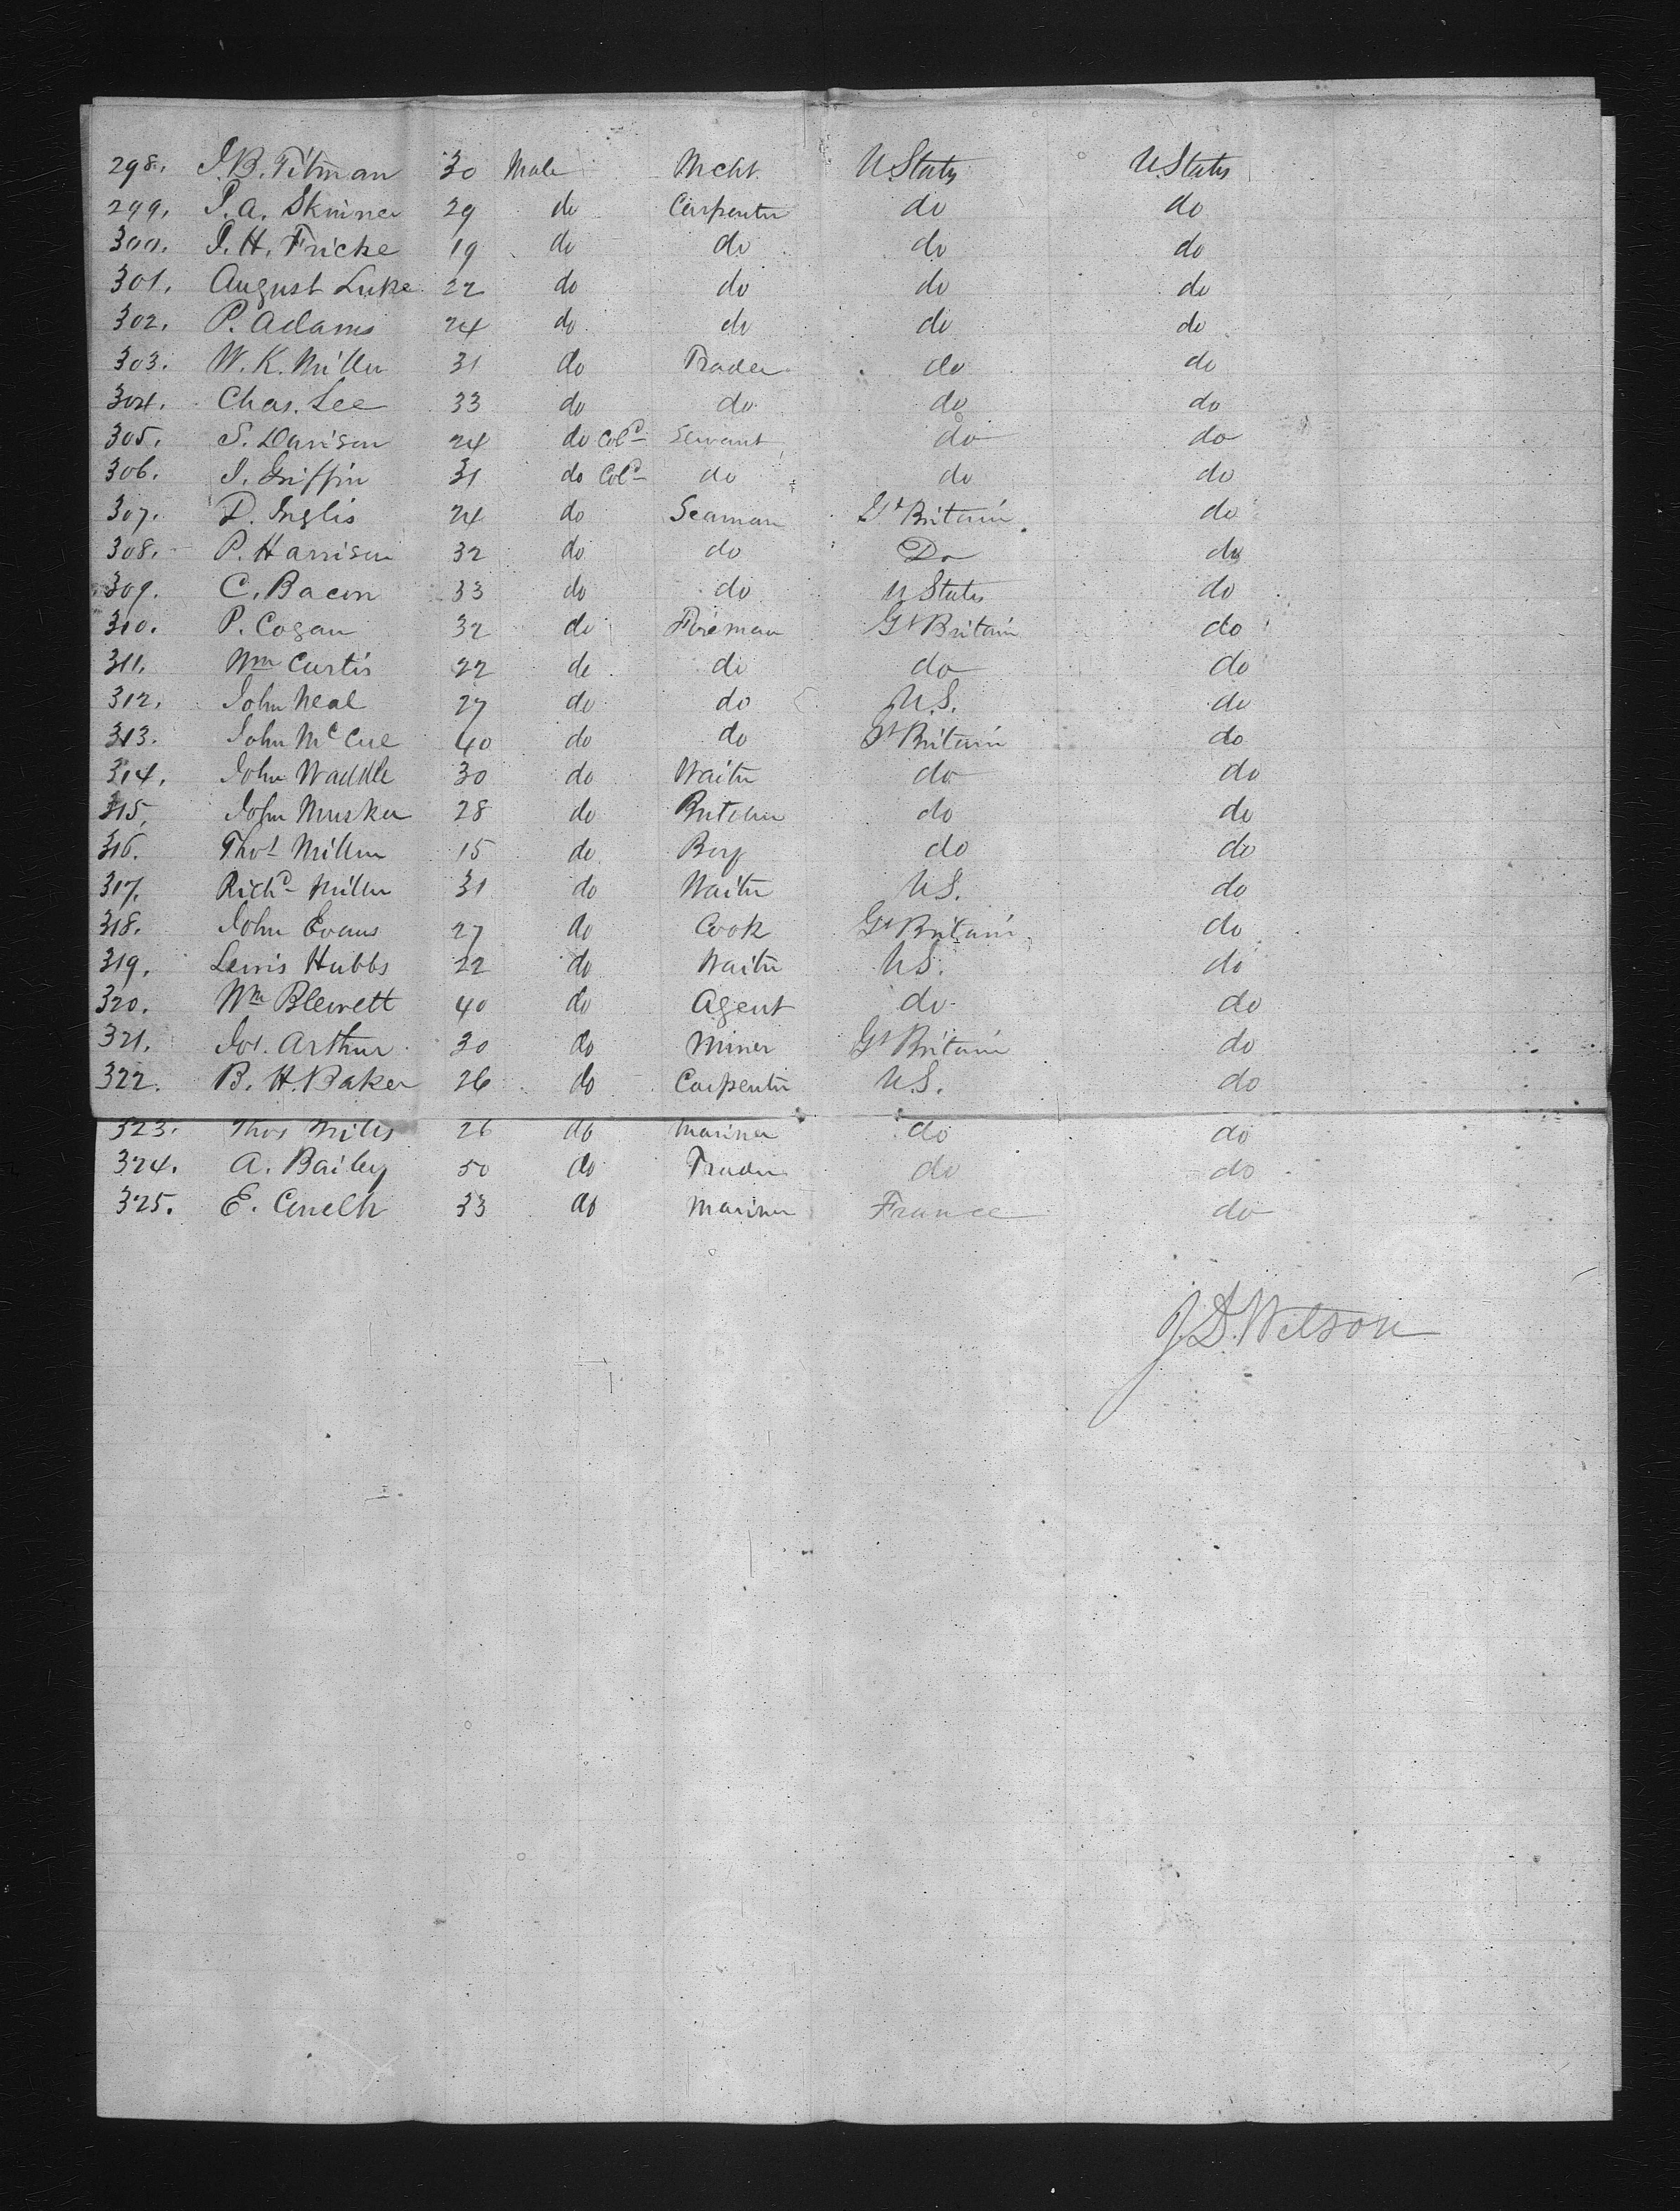 298. J. B. Titman 30 Male Mcht. U States U. States
299. J. A. Skinner 29 do Carpenter do do
300. J. H. Fricke 19 do do do do
301. August Luke 22 do do do do
302. P. Adams 24 do do do do
303. W. K. Miller 31 do Trader do do
304. Chas. Lee 33 do do do do
305. S. Davison 24 do Cold Servant do do
306. J. Griffin 31 do Cold do do do
307. D. Inglis 24 do Seaman Gt Britain do
308. P. Harrison 32 do do Do do
309. C. Bacon 33 do do U States do
310. P. Cogan 32 do Fireman Gt Britain do
311. Wm Curtis 22 do do do do
312. John Neal 27 do do U.S. do
313. John McCue 40 do do Gt Britain do
314. John Waddle 30 do Waiter do do
315. John Musker 28 do Butcher do do
316. Thos Miller 15 do Boy do do
317. Richd Miller 31 do Waiter U.S. do
318. John Evans 27 do Cook Gt Britain do
319. Lewis Hubbs 22 do Waiter U.S. do
320. Wm Blewett 40 do Agent do do
321. Jos. Arthur 30 do Miner Gt Britain do
322. B. H. Baker 26 do Carpenter U.S. do
323. Thos Miles 26 do Mariner do do
324. A. Bailey 50 do Trader do do
325. E. 33 do Mariner France do
J. D. Wilson